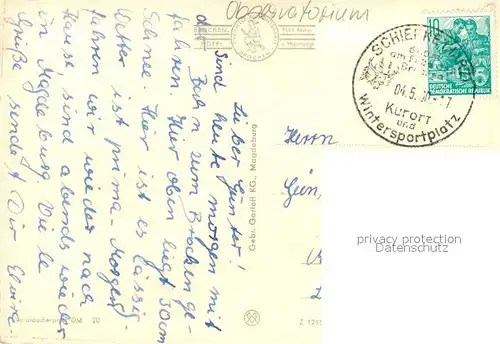 Observatorium
BROCKEN,
HOTEL
1142 Meter
ü. Meeresspiegel
BROCKEN
SCHIERKE
am Fuße
04.5.
Kurort
und
Wintersportplatz
10
DEUTSCHE
DEMOKRATISCHE REPUBLIK
Lieber Günter!
Sind heute morgen mit
der Bahn zum Brocken ge-
fahren. Hier oben liegt 30 cm
Schnee. Hier ist es lassig.
Wetter ist prima. Morgen
fahren wir wieder nach
Hause, sind abends wieder
in Magdeburg. Viele
Grüße sendet Dir Elvira
Gebr. Garloff KG., Magdeburg
Herrn
Gün
privacy protection
Datenschutz
20
Z 1241